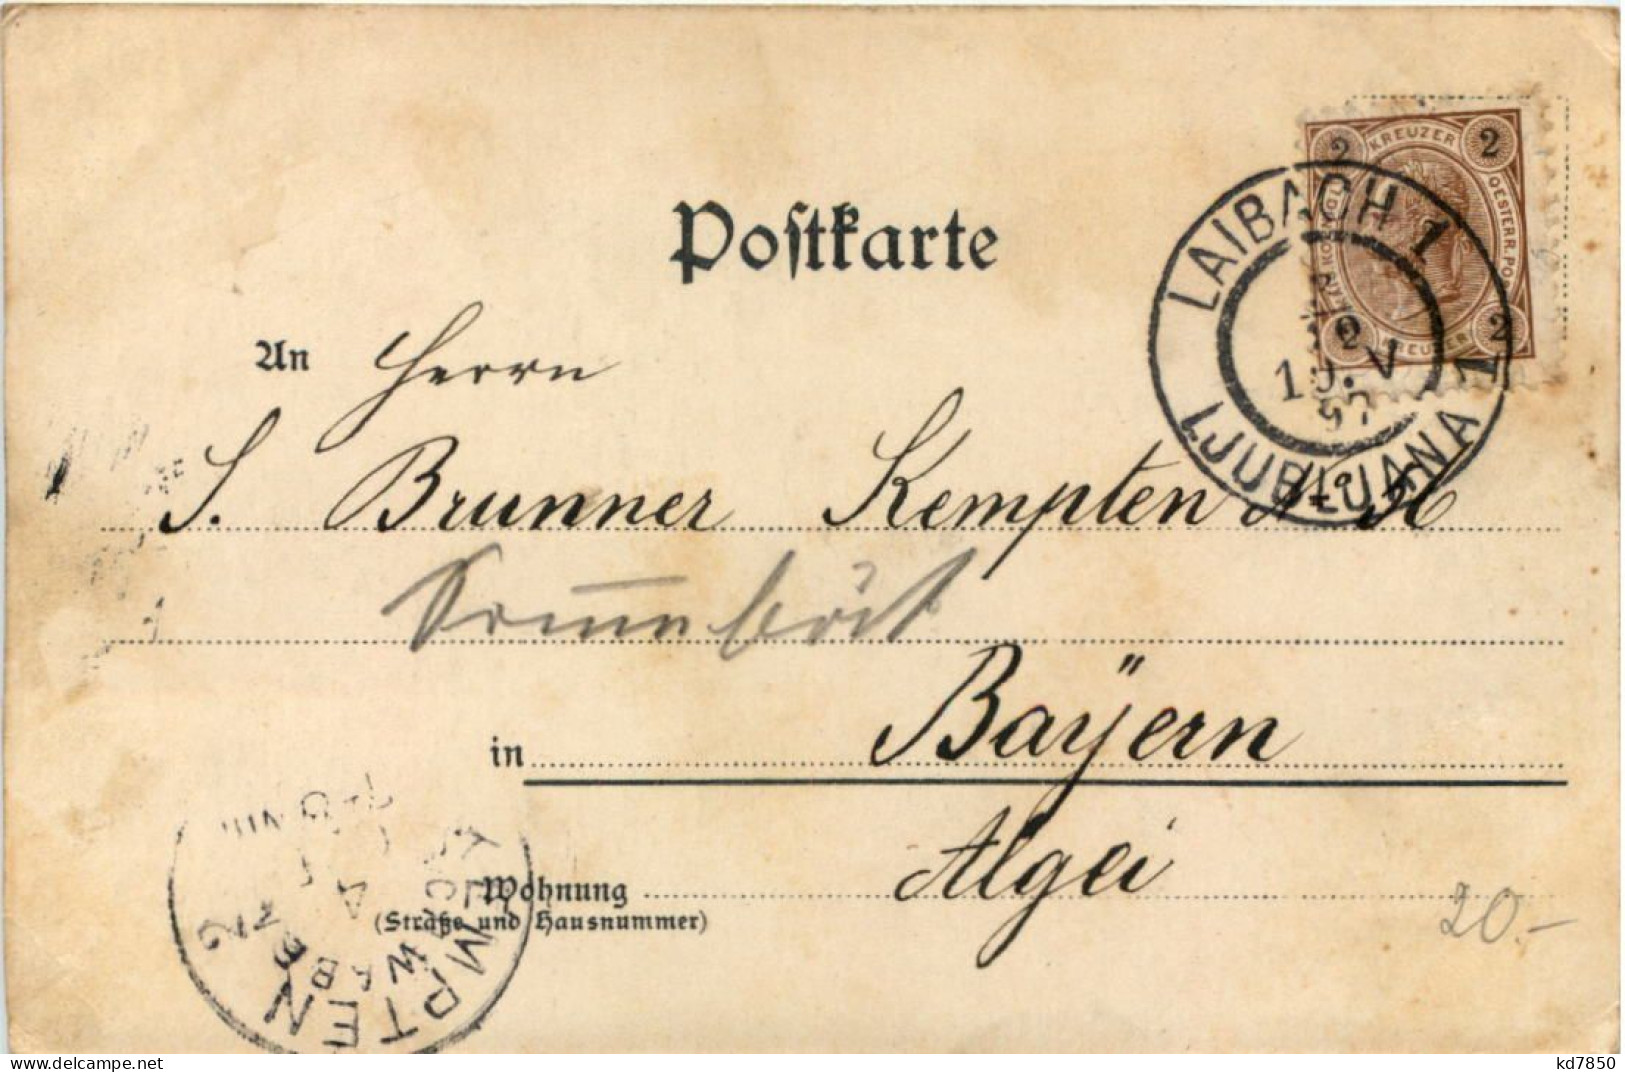 2 KREUZER 2
OESTERR. POST
LAIBACH 1
Postkarte
2 KREUZER 2
10. V
97
LJUBLJANA 1
An Herrn
S. Brunner Kempten
Bayern
in
Algei
KEMPTEN 2
SCHWABEN
Wohnung
(Straße und Hausnummer)
20.-
www.delcampe.net
kd7850